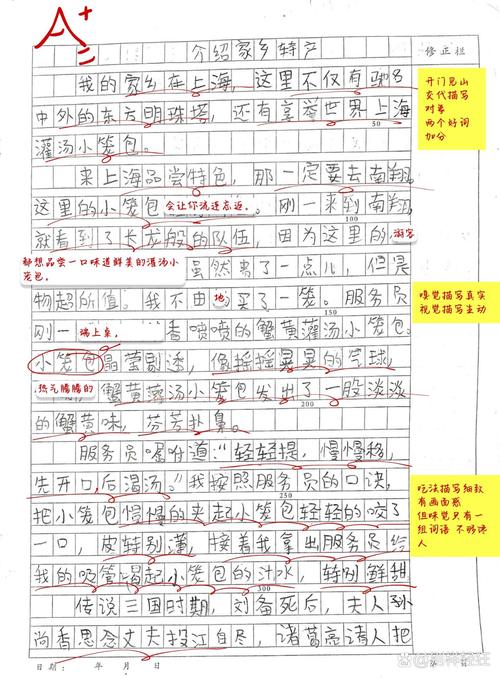 A+
介绍家乡特产
修正栏
我的家乡在上海,这里不仅有驰名
中外的东方明珠塔,还有享举世界上海
50
灌汤小笼包。
开门见山
交代描写
对象
两个好词
加分
来上海品尝特色,那一定要去南翔,
这里的小笼包会让你流连忘返。刚一来到南翔,
就看到了长龙般的队伍,因为这里的游客
都想品尝一口味道鲜美的灌汤小
笼包。
虽然贵了一点儿,但是
物超所值。我不由地买了一笼。服务员
刚一端上桌,香喷喷的蟹黄灌汤小笼包。
嗅觉描写真实
视觉描写生动
小笼包晶莹剔透,像摇摇晃晃的气球,
热气腾腾的
蟹黄灌汤小笼包发出了一股淡淡
200
的蟹黄味,芬芳扑鼻。
服务员嘱咐道:“轻轻提,慢慢移,
先开口,后喝汤。”我按照服务员的口诀,
250
把小笼包慢慢的夹起小笼包轻轻的咬了
一口,皮特别薄,接着我拿出服务员给
我的吸管喝起小笼包的汁水,特别鲜甜
300
吃法描写细致
有画面感
但味觉只有一
组词语 不够诱
人
传说三国时期,刘备死后,夫人孙
尚香思念丈夫投江自尽,诸葛亮诸人把
日期: 年 月 日